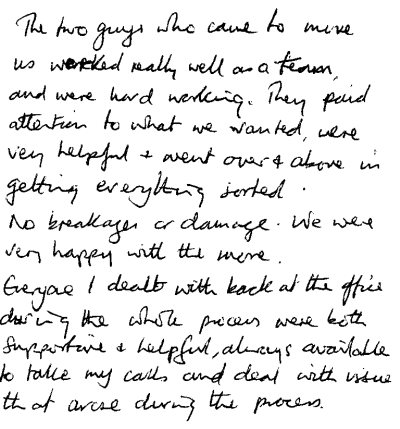 The two guys who came to move
us worked really well as a team,
and were hard working. They paid
attention to what we wanted, were
very helpful + went over & above in
getting everything sorted.
No breakages or damage. We were
very happy with the move.
Everyone I dealt with back at the office
during the whole process were both
supportive & helpful, always available
to take my calls and deal with issue
that arose during the process.